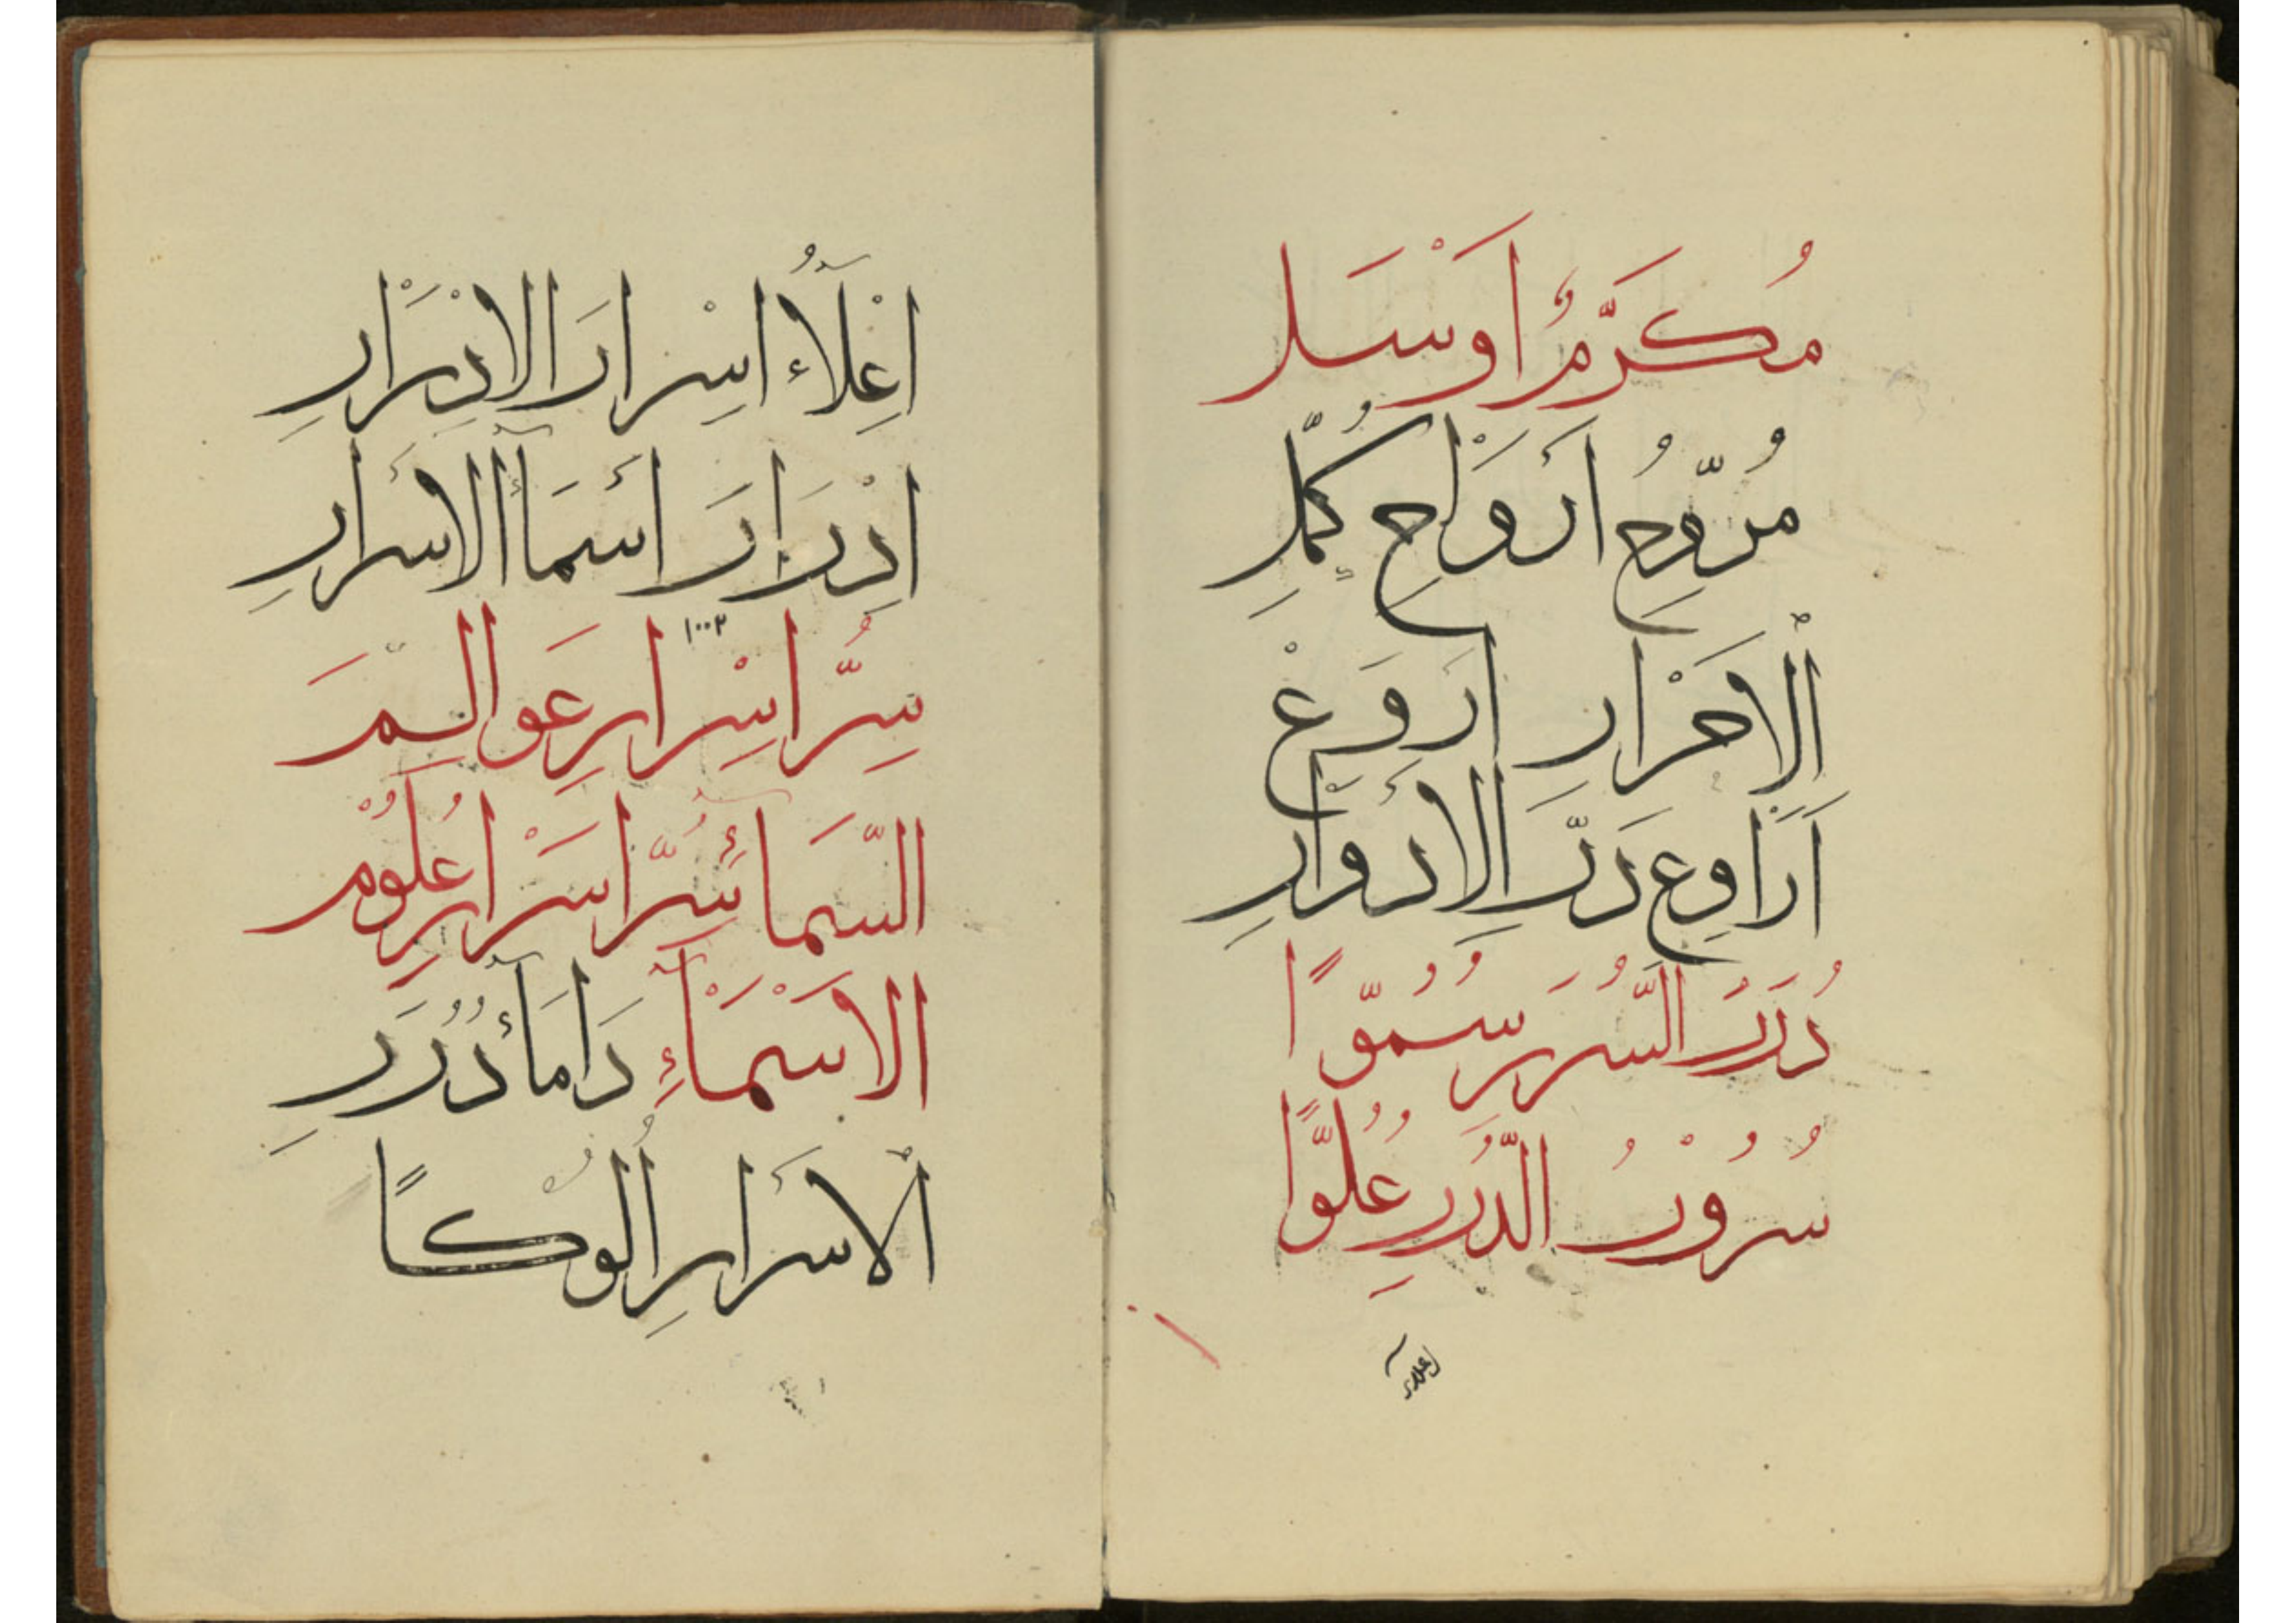 مُكَرَّمٌ اَوْسَلَ
مُرَّوِحُ اَرْوَاحِ كُمَّلِ
اَلْاَحْرَارِ اَرْوَعَ
اَرَاوِعَ دَرَّ الْاَدْوَارِ
دُرَرُ السُّرَرِ سُمُوًّا
سُرُوْرُ الدُّرَرِ عُلُوًّا
اِعْلَآءُ اِسْرَارَ الْاِدْرَارِ
اِدْرَارَ اَسْمَآءِ الْاَسْرَارِ
١٠٠٢
سِرُّ اِسْرَارِ عَوَالِمَ
السَّمَآءِ سِرُّ اَسْرَارِ عُلُوْمِ
الْاَسْمَآءِ دَامَآءَ دُرَرِ
اَلْاَسْرَارِ اَلُوْكًا